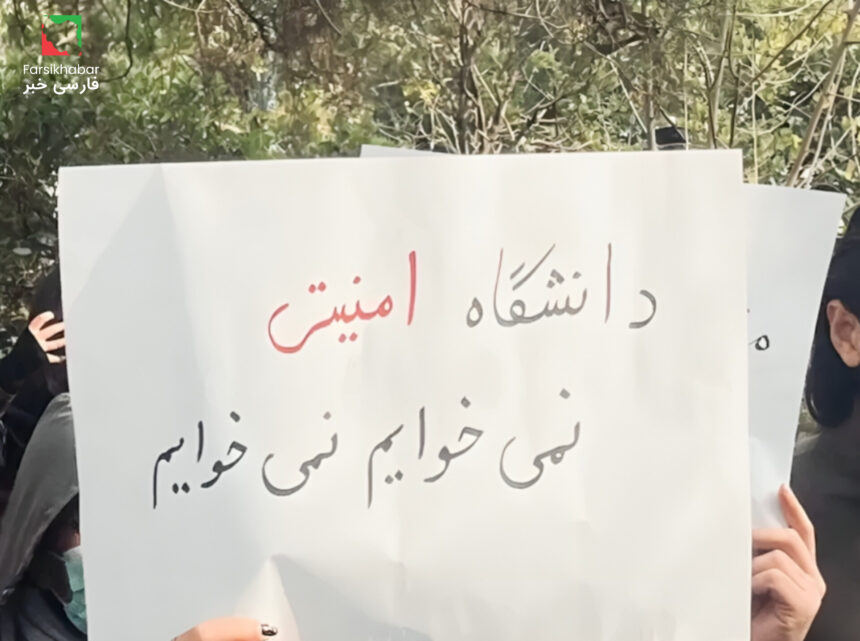 Farsikhabar
فارسی خبر
دانشگاه امنیتی
نمی خوایم نمی خوایم